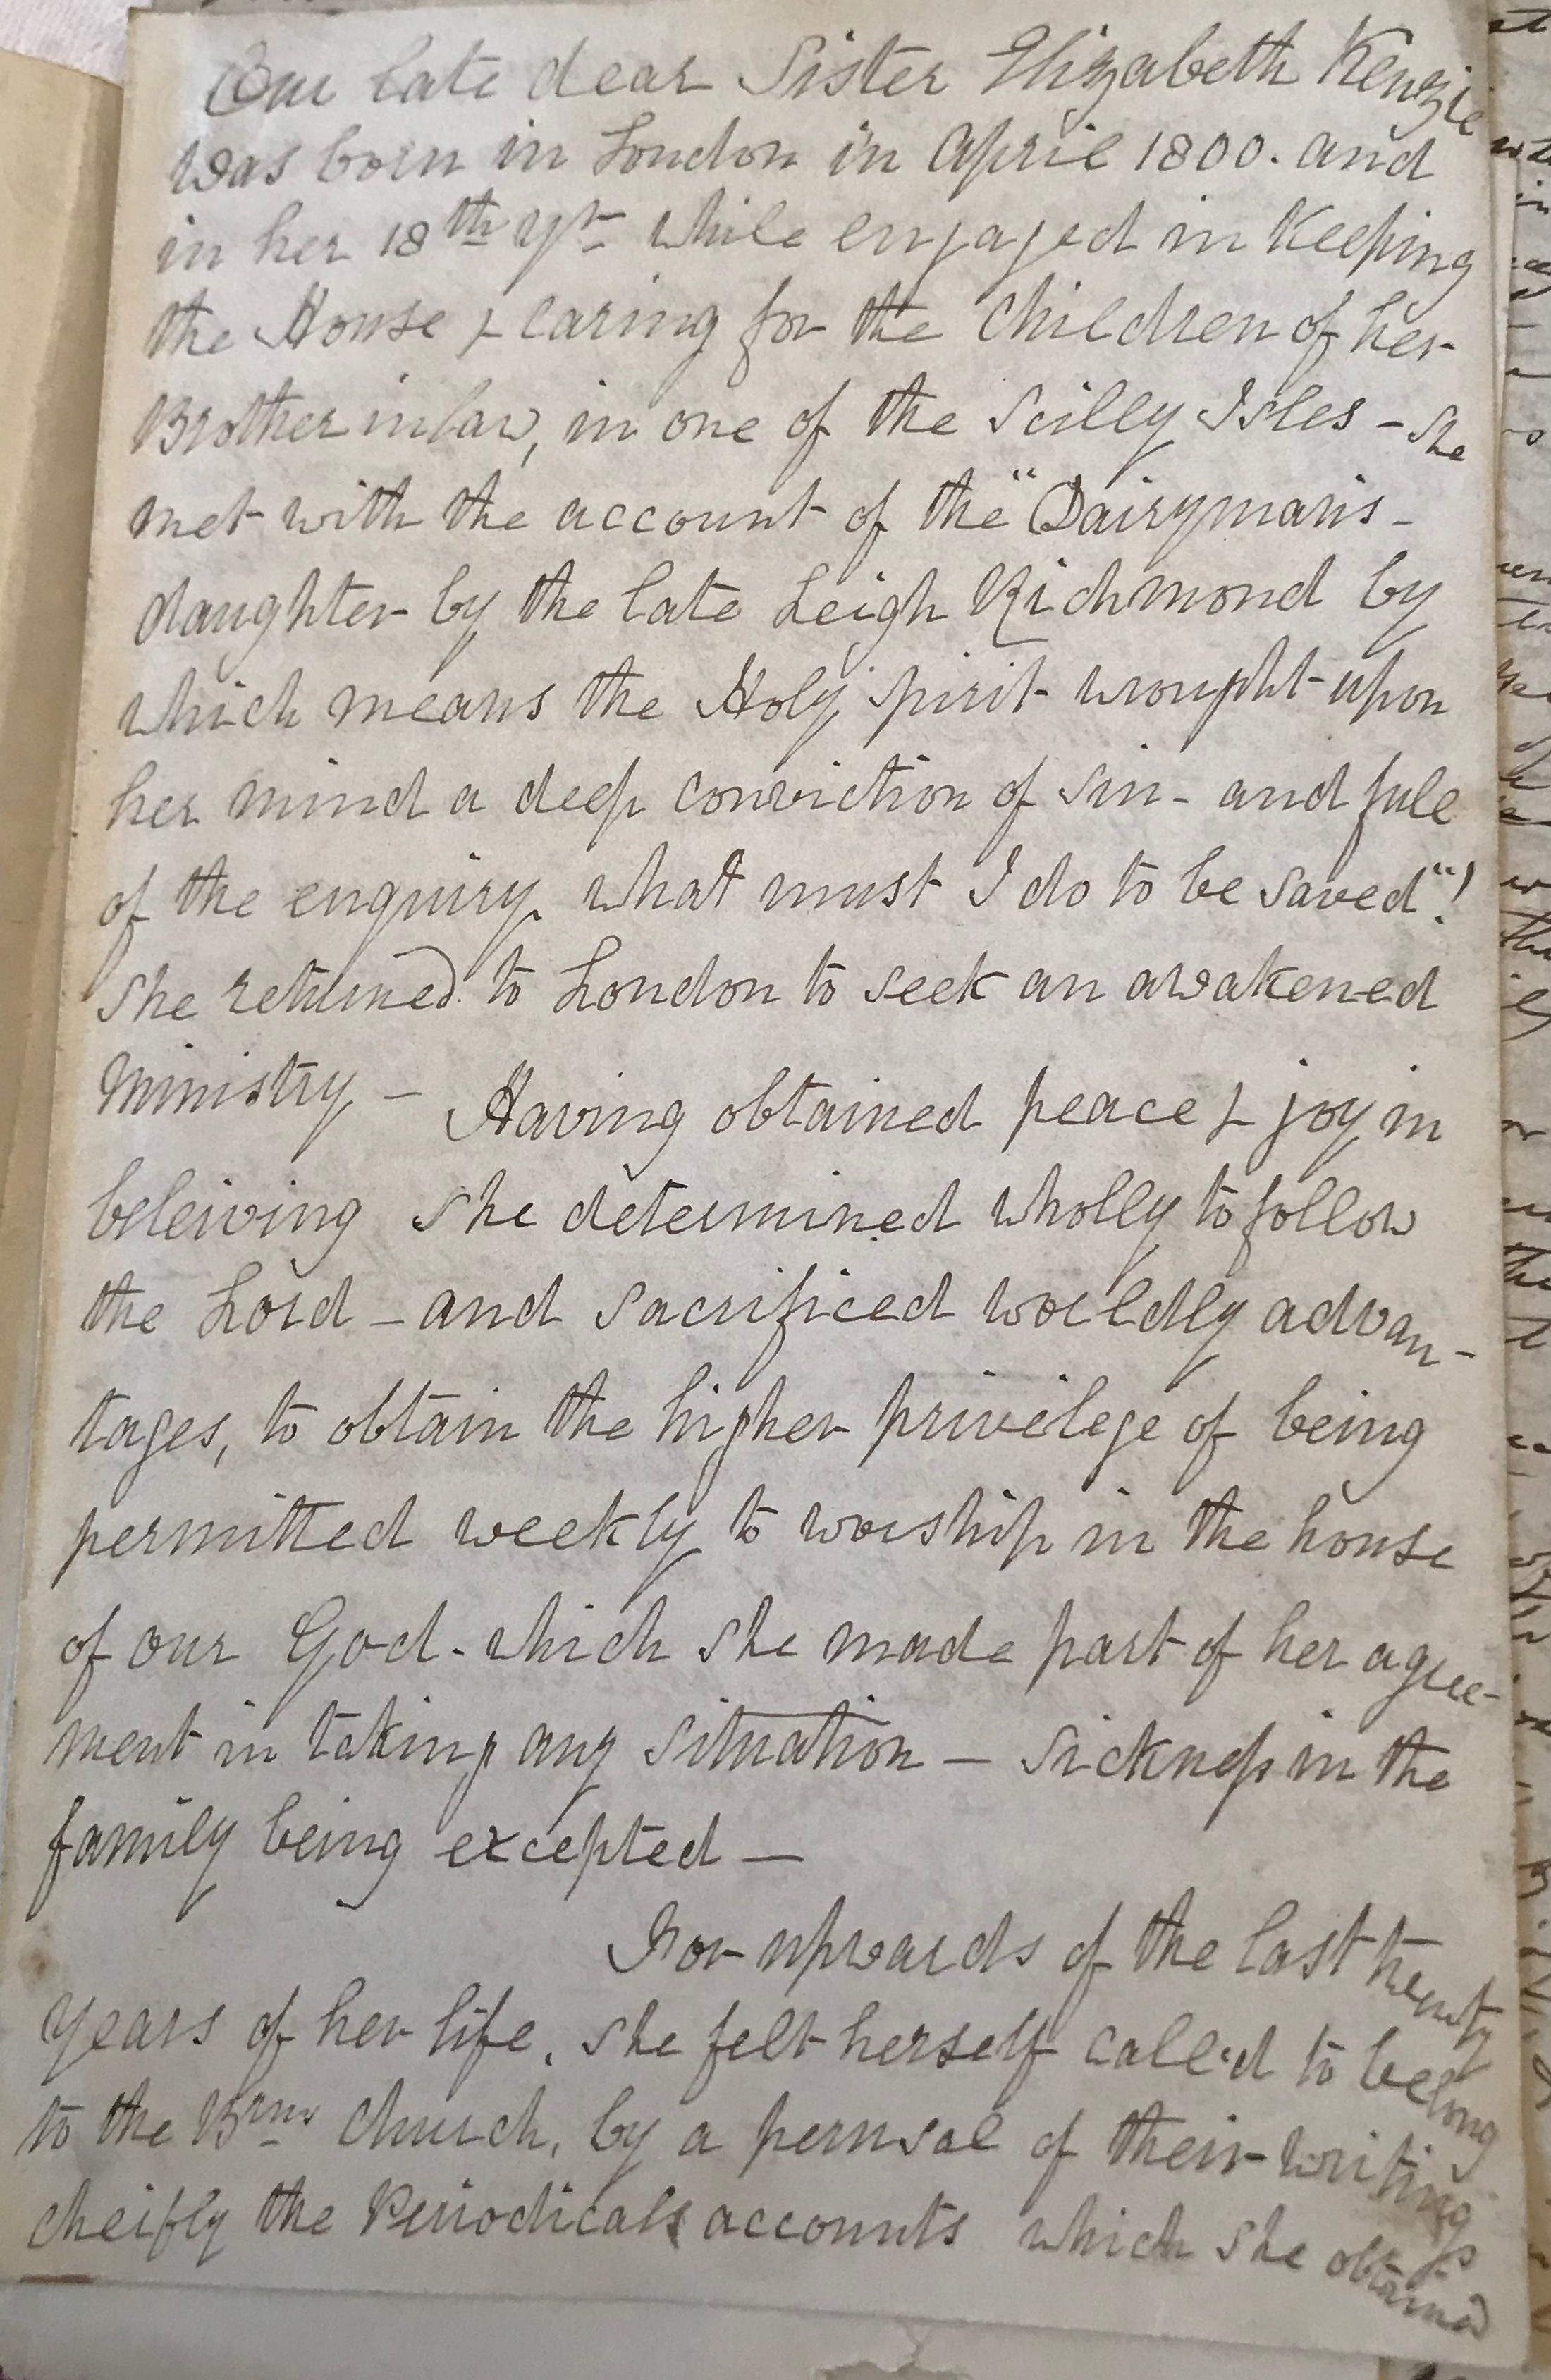 Our late dear Sister Elizabeth Kenzie
was born in London in April 1800. and
in her 18th yr while engaged in Keeping
the House & caring for the Children of her
Brother in law, in one of the Scilly Isles - she
met with the account of the "Dairymans -
daughter by the late Leigh Richmond by
which means the Holy Spirit wrought upon
her mind a deep conviction of sin - and full
of the enquiry what must I do to be saved"!
She returned to London to seek an awakened
Ministry - Having obtained peace & joy in
beleiving she determined wholly to follow
the Lord - and sacrificed worldly advan-
tages, to obtain the higher privilege of being
permitted weekly to worship in the house
of our God - which she made part of her agree-
ment in taking any situation - sickness in the
family being excepted -
For upwards of the last twenty
years of her life, she felt herself called to belong
to the Brns Church, by a perusal of their writings
cheifly the Periodicals accounts which she obtained